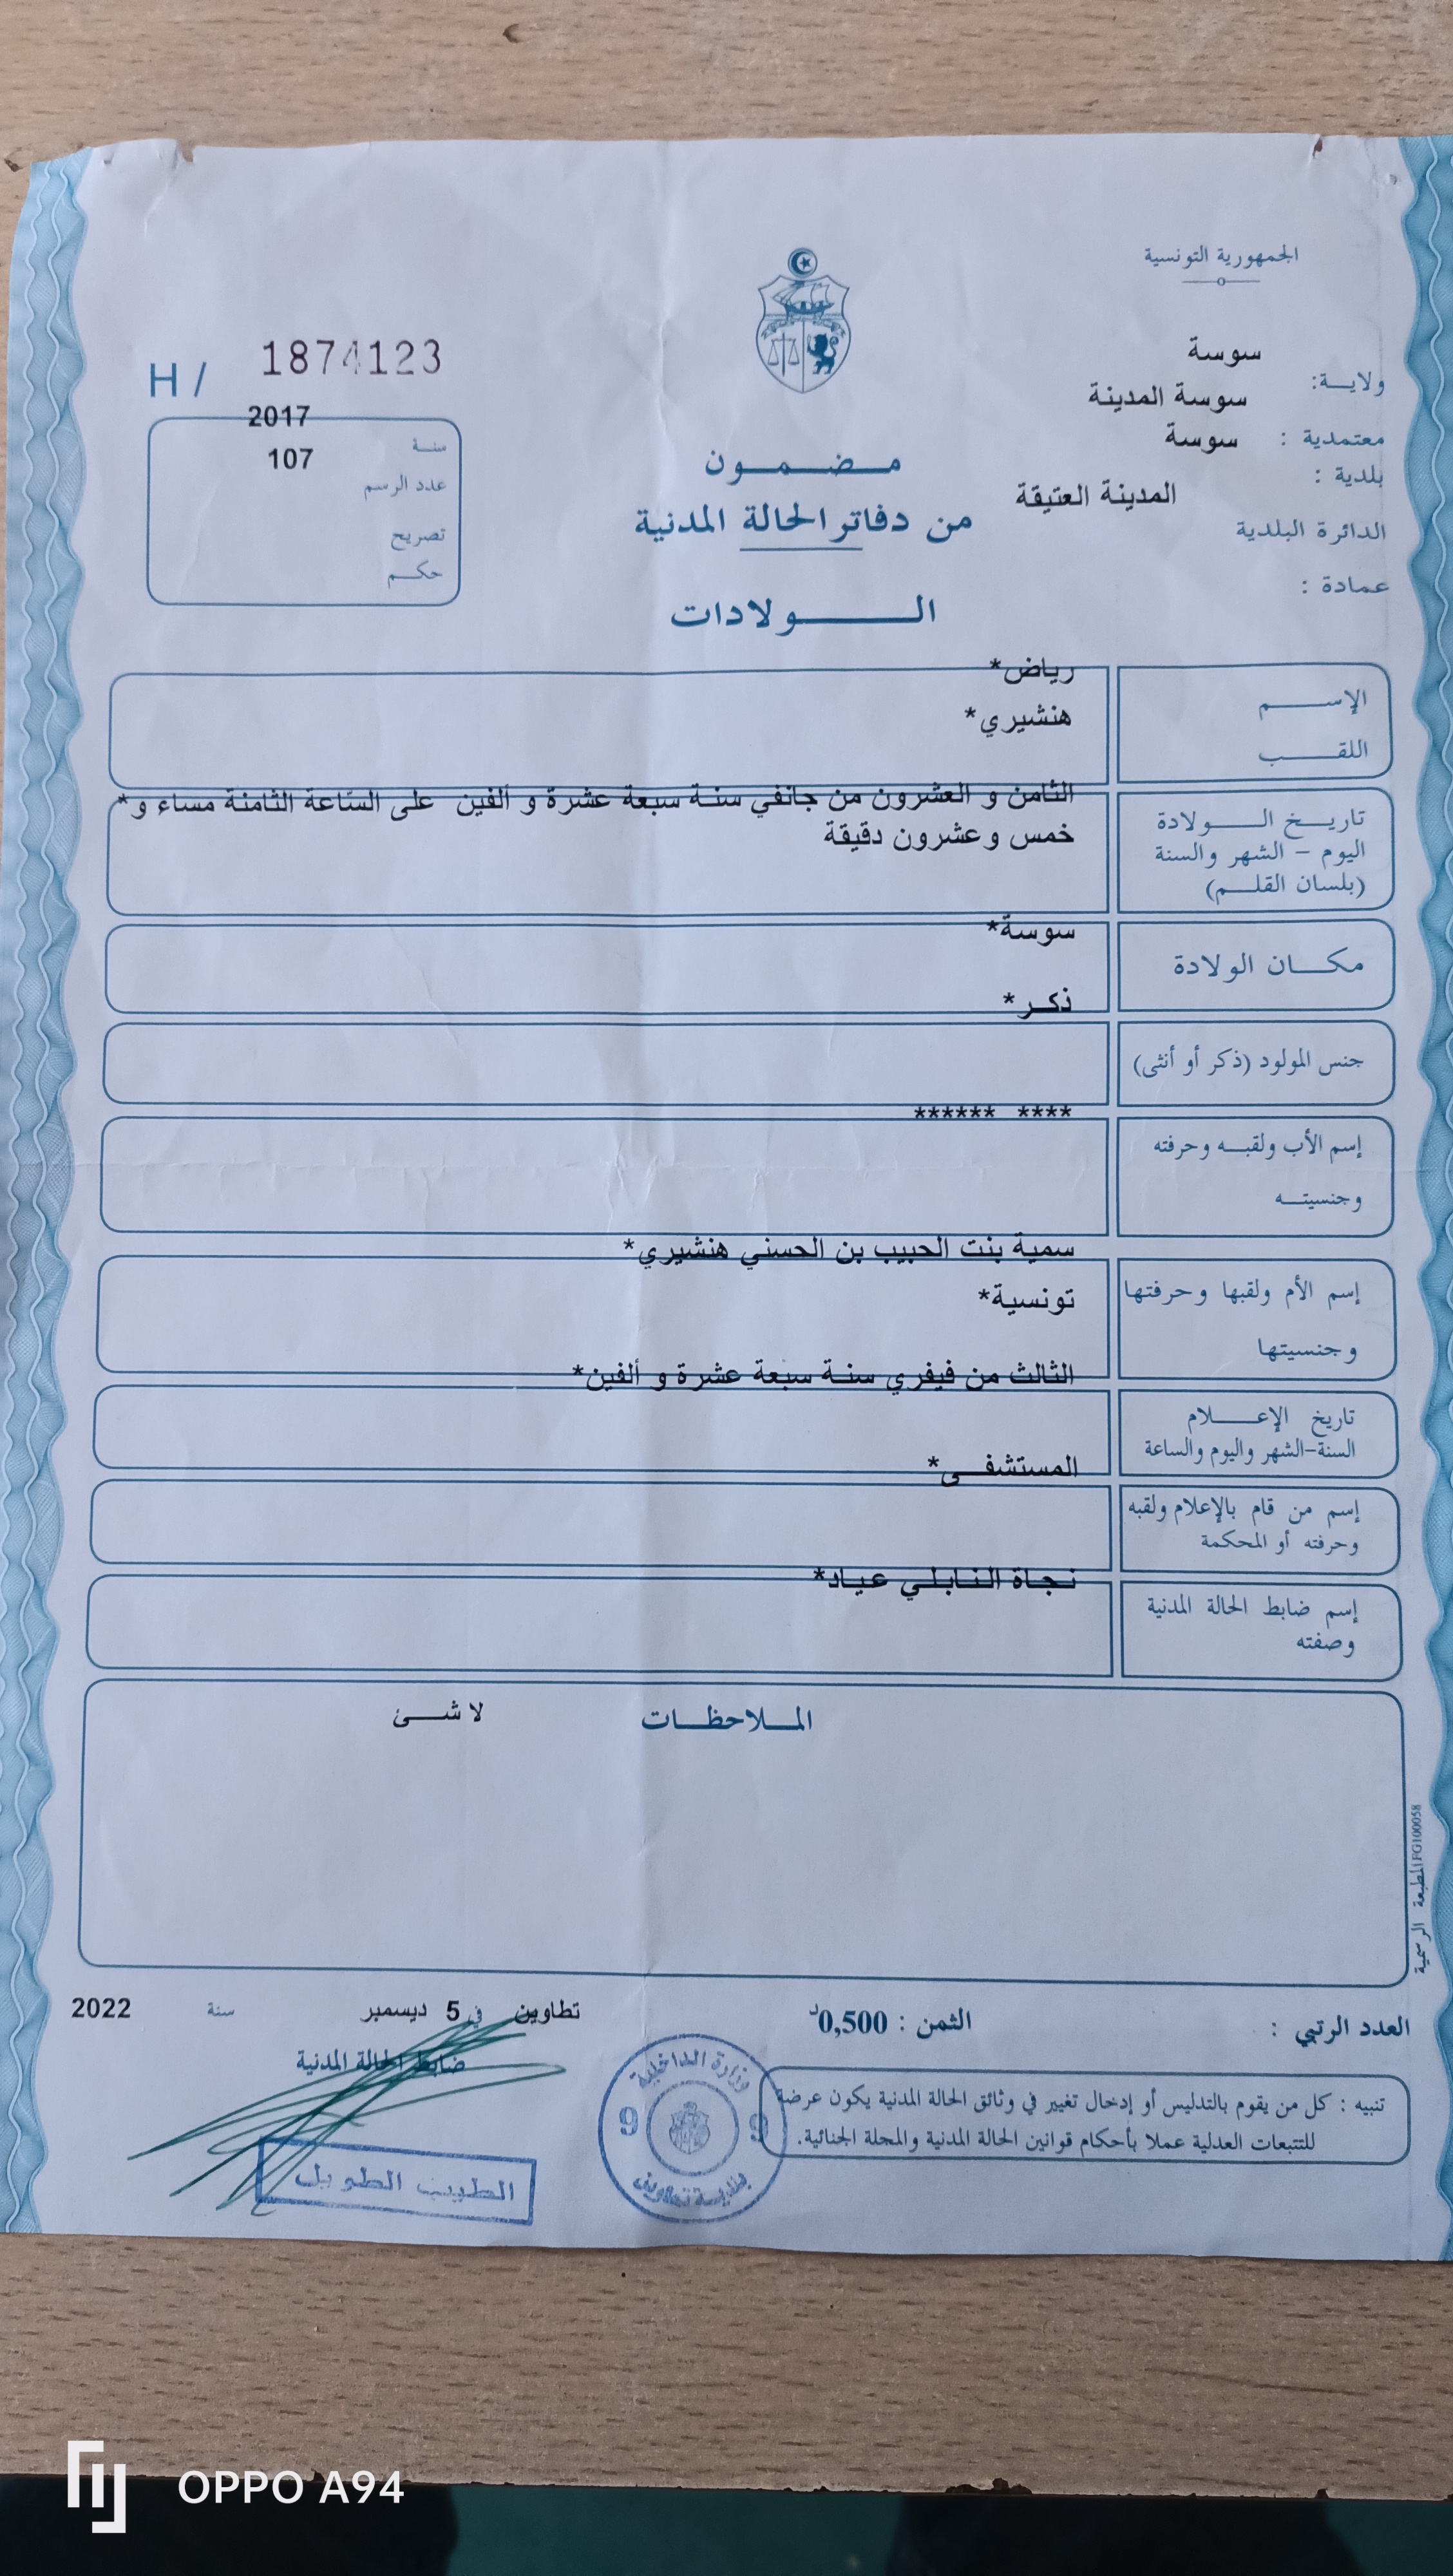 الجمهورية التونسية
سوسة
ولايـــة:
سوسة المدينة
معتمدية :
سوسة
بلدية :
المدينة العتيقة
الدائرة البلدية
عمادة :
H / 1874123
2017
سنــة
107
عدد الرسم
تصريح
حكــم
مــضــمــون
من دفاتر الحالة المدنية
الــــولادات
رياض*
الإســــم
هنشيري*
اللقــــب
الثامن و العشرون من جانفي سنة سبعة عشرة و ألفين على الساعة الثامنة مساء و*
خمس وعشرون دقيقة
تاريــخ الـــولادة
اليوم – الشهر والسنة
(بلسان القلــم)
سوسة*
مكـــان الولادة
ذكــر*
جنس المولود (ذكر أو أنثى)
**** ******
إسم الأب ولقبــه وحرفته
وجنسيتــه
سمية بنت الحبيب بن الحسني هنشيري*
إسم الأم ولقبها وحرفتها
تونسية*
وجنسيتها
الثالث من فيفري سنة سبعة عشرة و ألفين*
تاريخ الإعـــلام
السنة-الشهر واليوم والساعة
المستشفــى*
إسم من قام بالإعلام ولقبه
وحرفته أو المحكمة
نجاة النابلي عياد*
إسم ضابط الحالة المدنية
وصفته
المــلاحظــات
لا شــئ
المطبعة الرسمية FG100058
العدد الرتبي :
الثمن : 0,500د
تطاوين في 5 ديسمبر سنة 2022
ضابط الحالة المدنية
تنبيه : كل من يقوم بالتدليس أو إدخال تغيير في وثائق الحالة المدنية يكون عرضة
للتتبعات العدلية عملا بأحكام قوانين الحالة المدنية والمجلة الجنائية.
وزارة الداخلية
9 9
بلدية تطاوين
الطيب الطويل
OPPO A94